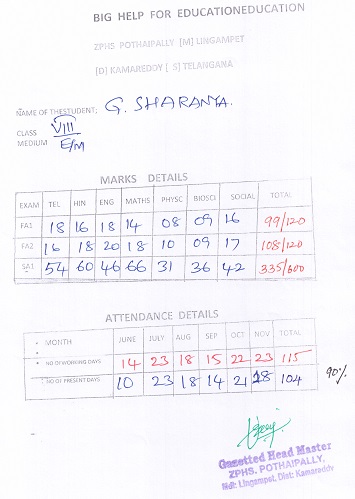 BIG HELP FOR EDUCATIONEDUCATION
ZPHS POTHAIPALLY [M] LINGAMPET
[D] KAMAREDDY [ S] TELANGANA
NAME OF THESTUDENT; G. SHARANYA.
CLASS VIII
MEDIUM E/M
MARKS DETAILS
EXAM TEL HIN ENG MATHS PHYSC BIOSCI SOCIAL TOTAL
FA1 18 16 18 14 08 09 16 99/120
FA2 16 18 20 18 10 09 17 108/120
SA1 54 60 46 66 31 36 42 335/600
ATTENDANCE DETAILS
MONTH JUNE JULY AUG SEP OCT NOV TOTAL
NO OF WORKING DAYS 14 23 18 15 22 23 115
NO OF PRESENT DAYS 10 23 18 14 21 18 104 90%
Gazetted Head Master
ZPHS. POTHAIPALLY,
Mdl: Lingampet, Dist: Kamareddy